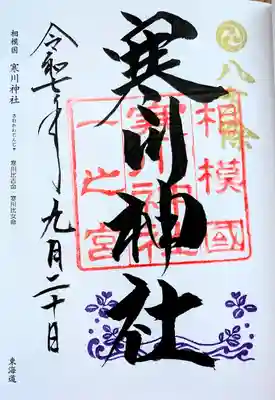 八方除
相模國
一之宮
寒川神社
令和七年九月二十日
相模国 寒川神社
さむかわじんじゃ
寒川比古命・寒川比女命
東海道